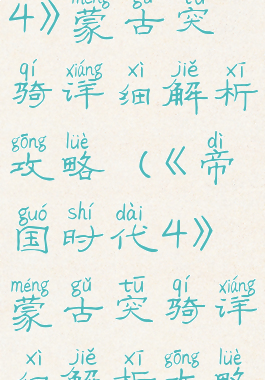 4》蒙古突
qí xiáng xì jiě xī
骑详细解析
gōng lüè dì
攻略（《帝
guó shí dài
国时代4》
méng gǔ tū qí xiáng
蒙古突骑详
xì jiě xī gōng lüè